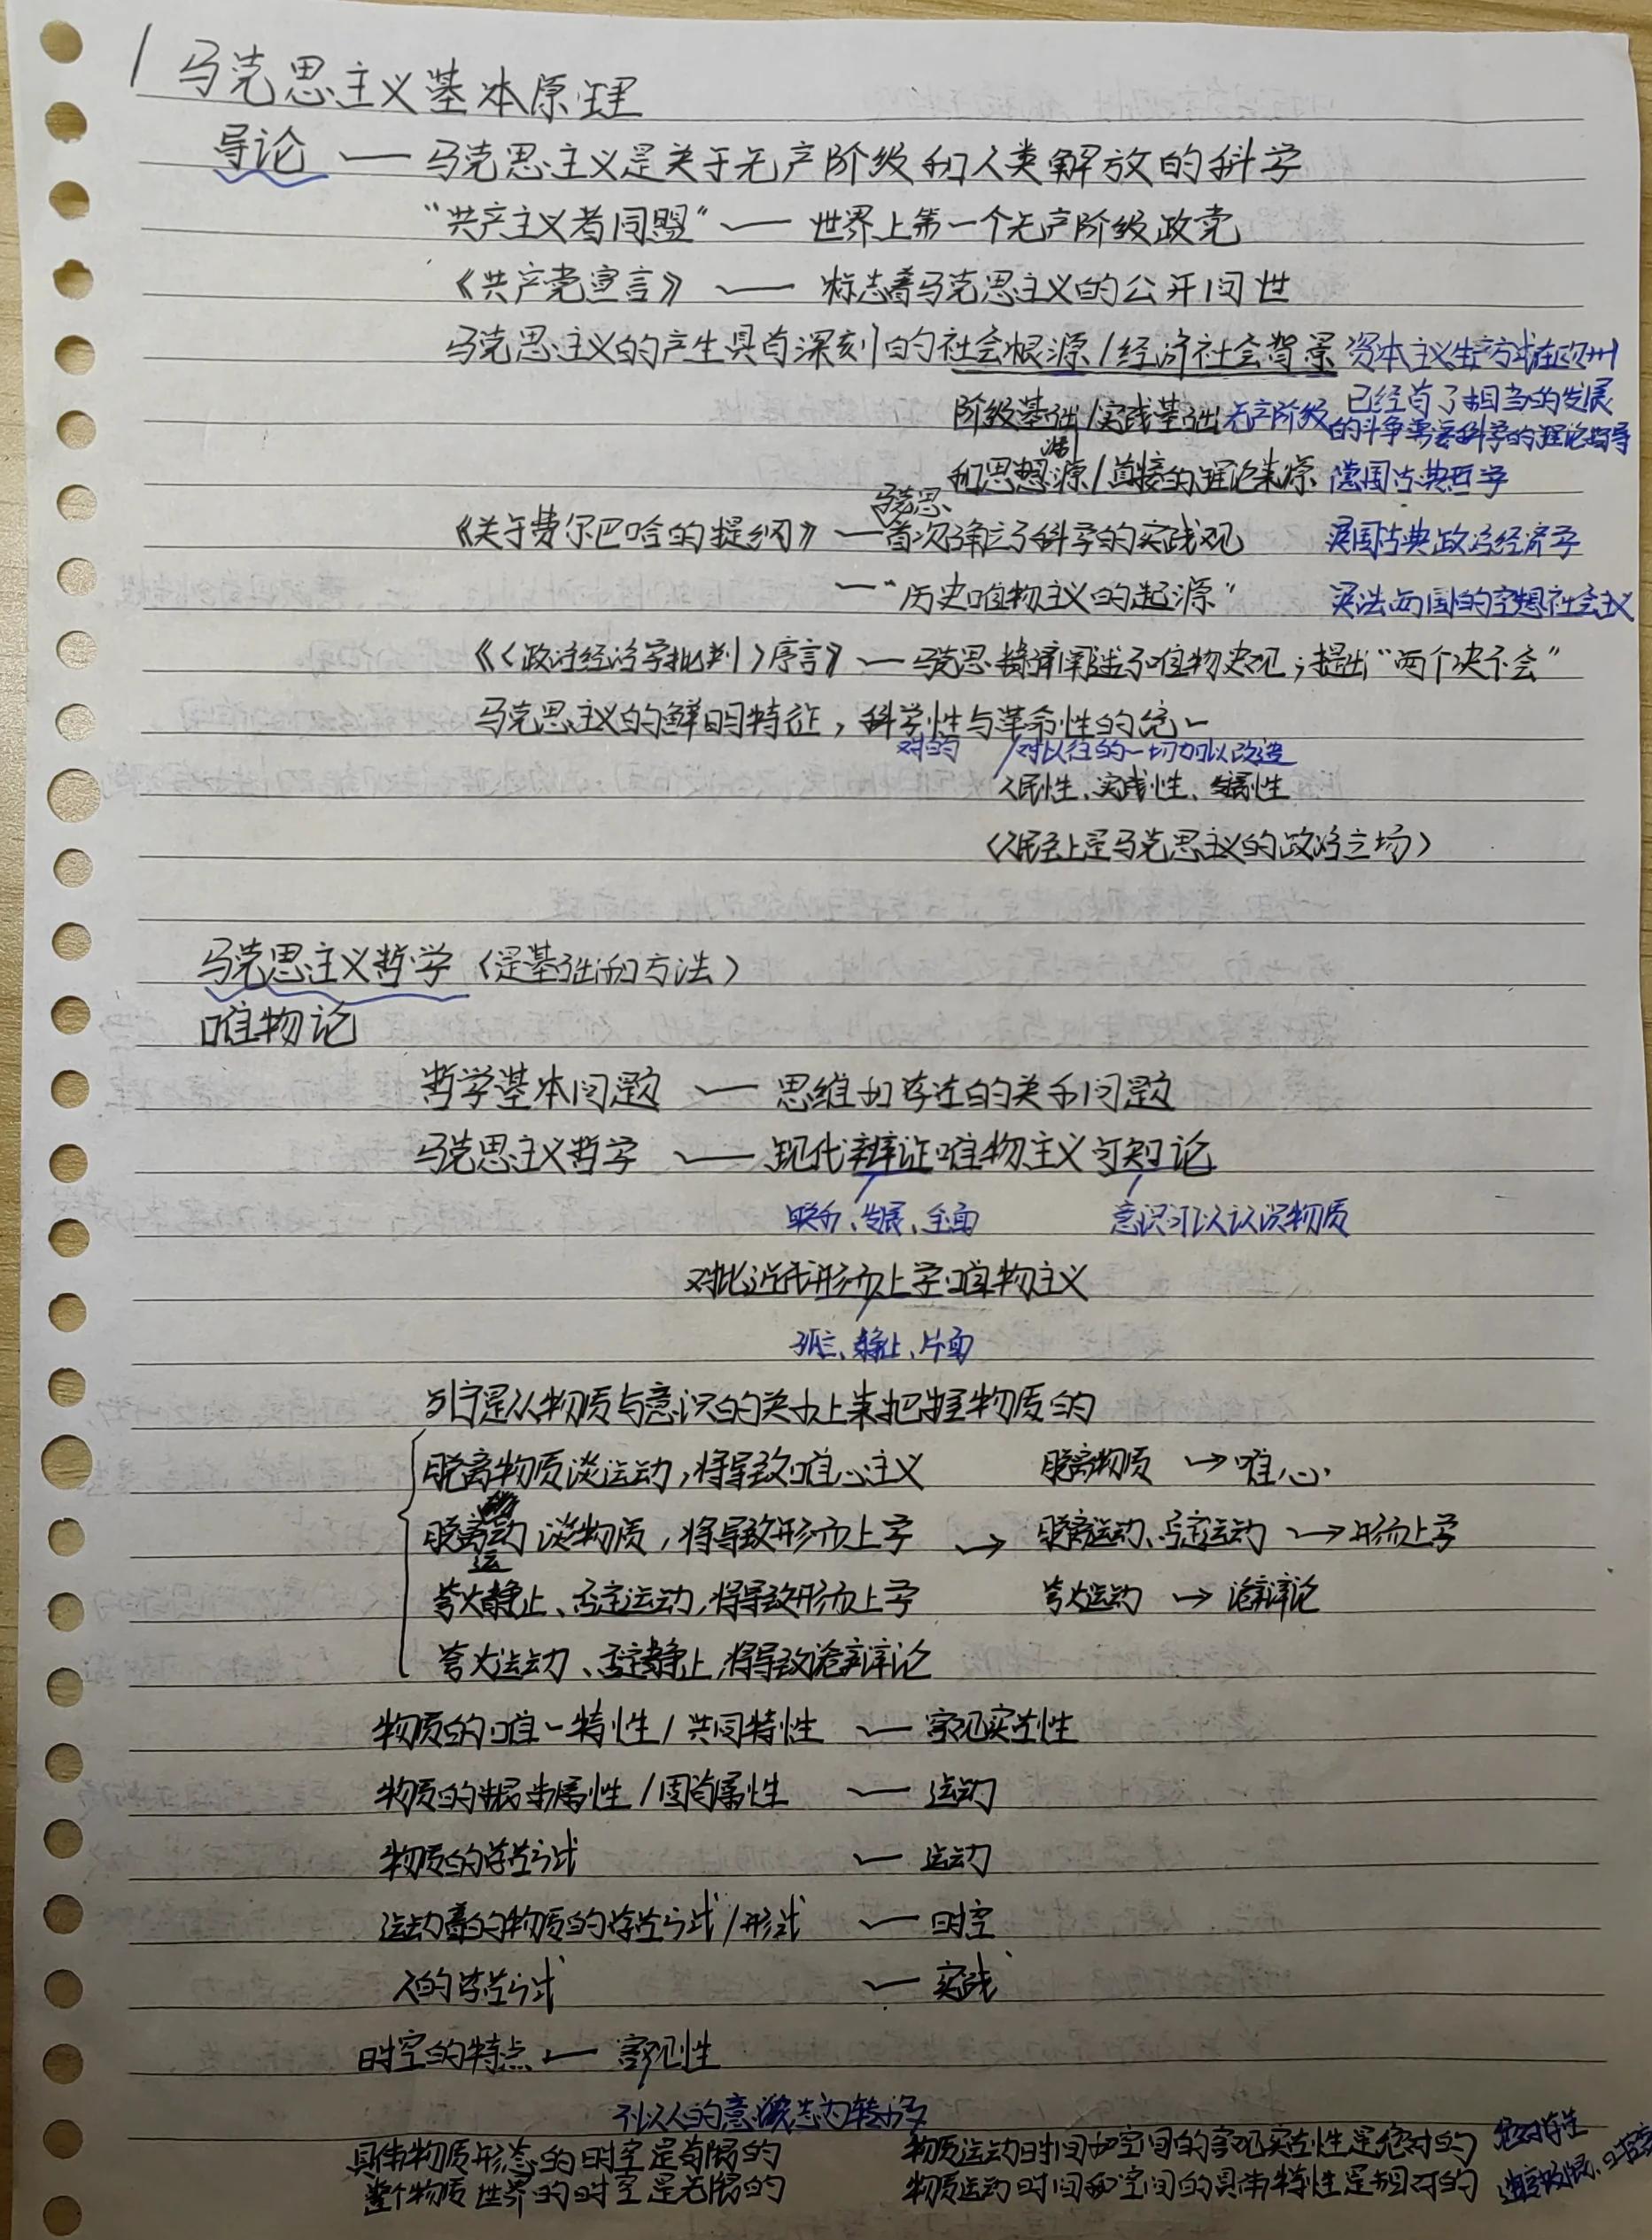 1 马克思主义基本原理
导论 — 马克思主义是关于无产阶级和人类解放的科学
“共产主义者同盟” — 世界上第一个无产阶级政党
《共产党宣言》 — 标志着马克思主义的公开问世
马克思主义的产生具有深刻的社会根源/经济社会背景 资本主义生产方式在欧州
已经有了相当的发展
阶级基础/实践基础 无产阶级的斗争需要科学的理论指导
和思想渊源/直接的理论来源 德国古典哲学
《关于费尔巴哈的提纲》 — 马克思首次确立了科学的实践观 英国古典政治经济学
— “历史唯物主义的起源” 英法两国的空想社会主义
《〈政治经济学批判〉序言》 — 马克思 阐述了唯物史观;提出“两个决不会”
马克思主义的鲜明特征,科学性与革命性的统一
对的 对以往的一切加以改造
人民性、实践性、发展性
〈人民至上是马克思主义的政治立场〉
马克思主义哲学〈是基础和方法〉
唯物论
哲学基本问题 — 思维和存在的关系问题
马克思主义哲学 — 现代辩证唯物主义 可知论
联系、发展、全面 意识可以认识物质
对比近代形而上学唯物主义
孤立、静止、片面
列宁是从物质与意识的关系上来把握物质的
脱离物质谈运动,将导致唯心主义 脱离物质 → 唯心
脱离运动谈物质,将导致形而上学 → 脱离运动、否定运动 → 形而上学
夸大静止、否定运动,将导致形而上学 夸大运动 → 诡辩论
夸大运动、否定静止,将导致诡辩论
物质的唯一特性/共同特性 — 客观实在性
物质的根本属性/固有属性 — 运动
物质的存在方式 — 运动
运动着的物质的存在方式/形式 — 时空
人的存在方式 — 实践
时空的特点 — 客观性
不以人的意识 为转移
具体物质形态的时空是有限的 物质运动时间和空间的客观实在性是绝对的 绝对存在
整个物质世界的时空是无限的 物质运动时间和空间的具体特性是相对的